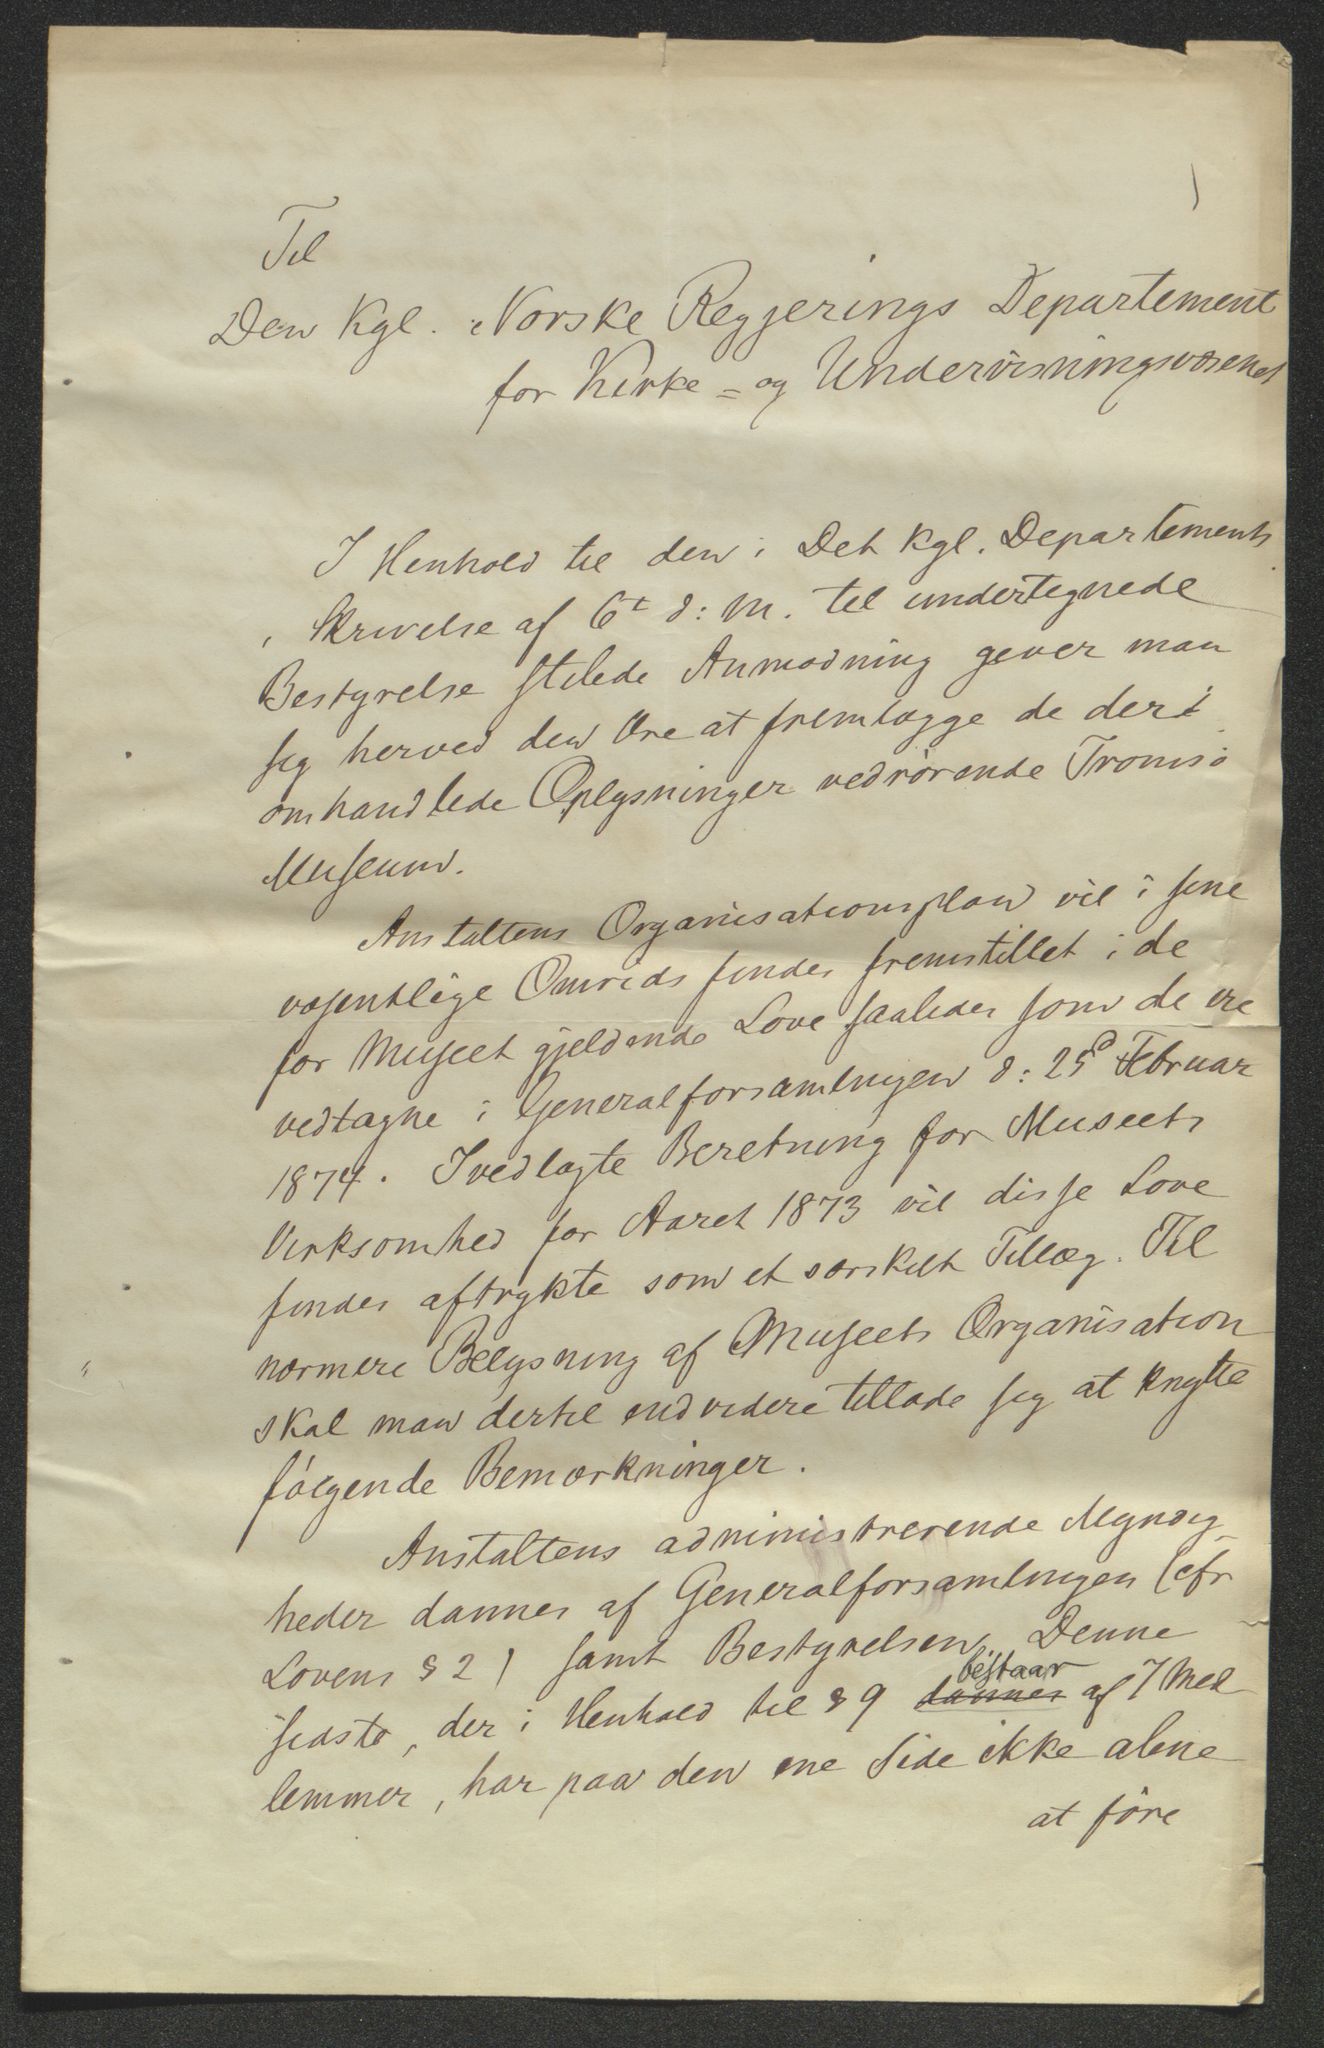 Til
Den Kgl. Norske Regjerings Departement
for Kirke = og Undervisningsvæsenet
I Henhold til den i Det Kgl. Departements
Skrivelse af 6t d: M. til undertegnede
Bestyrelse stilede Anmodning giver man
sig herved den Ære at fremlægge de deri
omhandlede Oplysninger vedrørende Tromsö
Museum.
Anstaltens Organisationsplan vil i sine
væsentlige Omrids findes fremstillet i de
for Museet gjeldende Love saaledes som de ere
vedtagne i Generalforsamlingen d: 25d Februar
1874. I vedlagte Beretning for Museets
Virksomhed for Aaret 1873 vil disse Love
findes aftrykte som et særskilt Tillæg. Til
nærmere Belysning af Museets Organisation
skal man dertil endvidere tillade sig at knytte
følgende Bemærkninger.
Anstaltens administrerende Myndig
heder dannes af Generalforsamlingen (cfr
Lovens § 2) samt Bestyrelsen. Denne
bestaar
sidste, der i Henhold til § 9 dannes af 7 Med
lemmer, har paa den ene Side ikke alene
at före